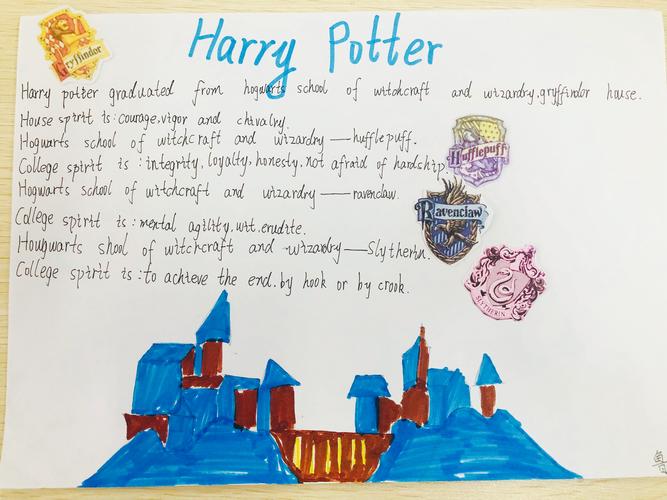 Harry Potter
Gryffindor
Harry potter graduated from hogwarts school of witchcraft and wizardry.gryffindor house.
House spirit is:courage.vigor and chivalry.
Hogwarts school of witchcraft and wizardry——hufflepuff.
Hufflepuff
College spirit is:integrity.loyalty.honesty.not afraid of hardship.
Hogwarts school of witchcraft and wizardry——ravenclaw.
Ravenclaw
College spirit is:mental agility.wit.erudite.
Hougwarts shool of witchcraft and wizardry——Slytherin.
College spirit is:to achieve the end.by hook or by crook.
SLYTHERIN